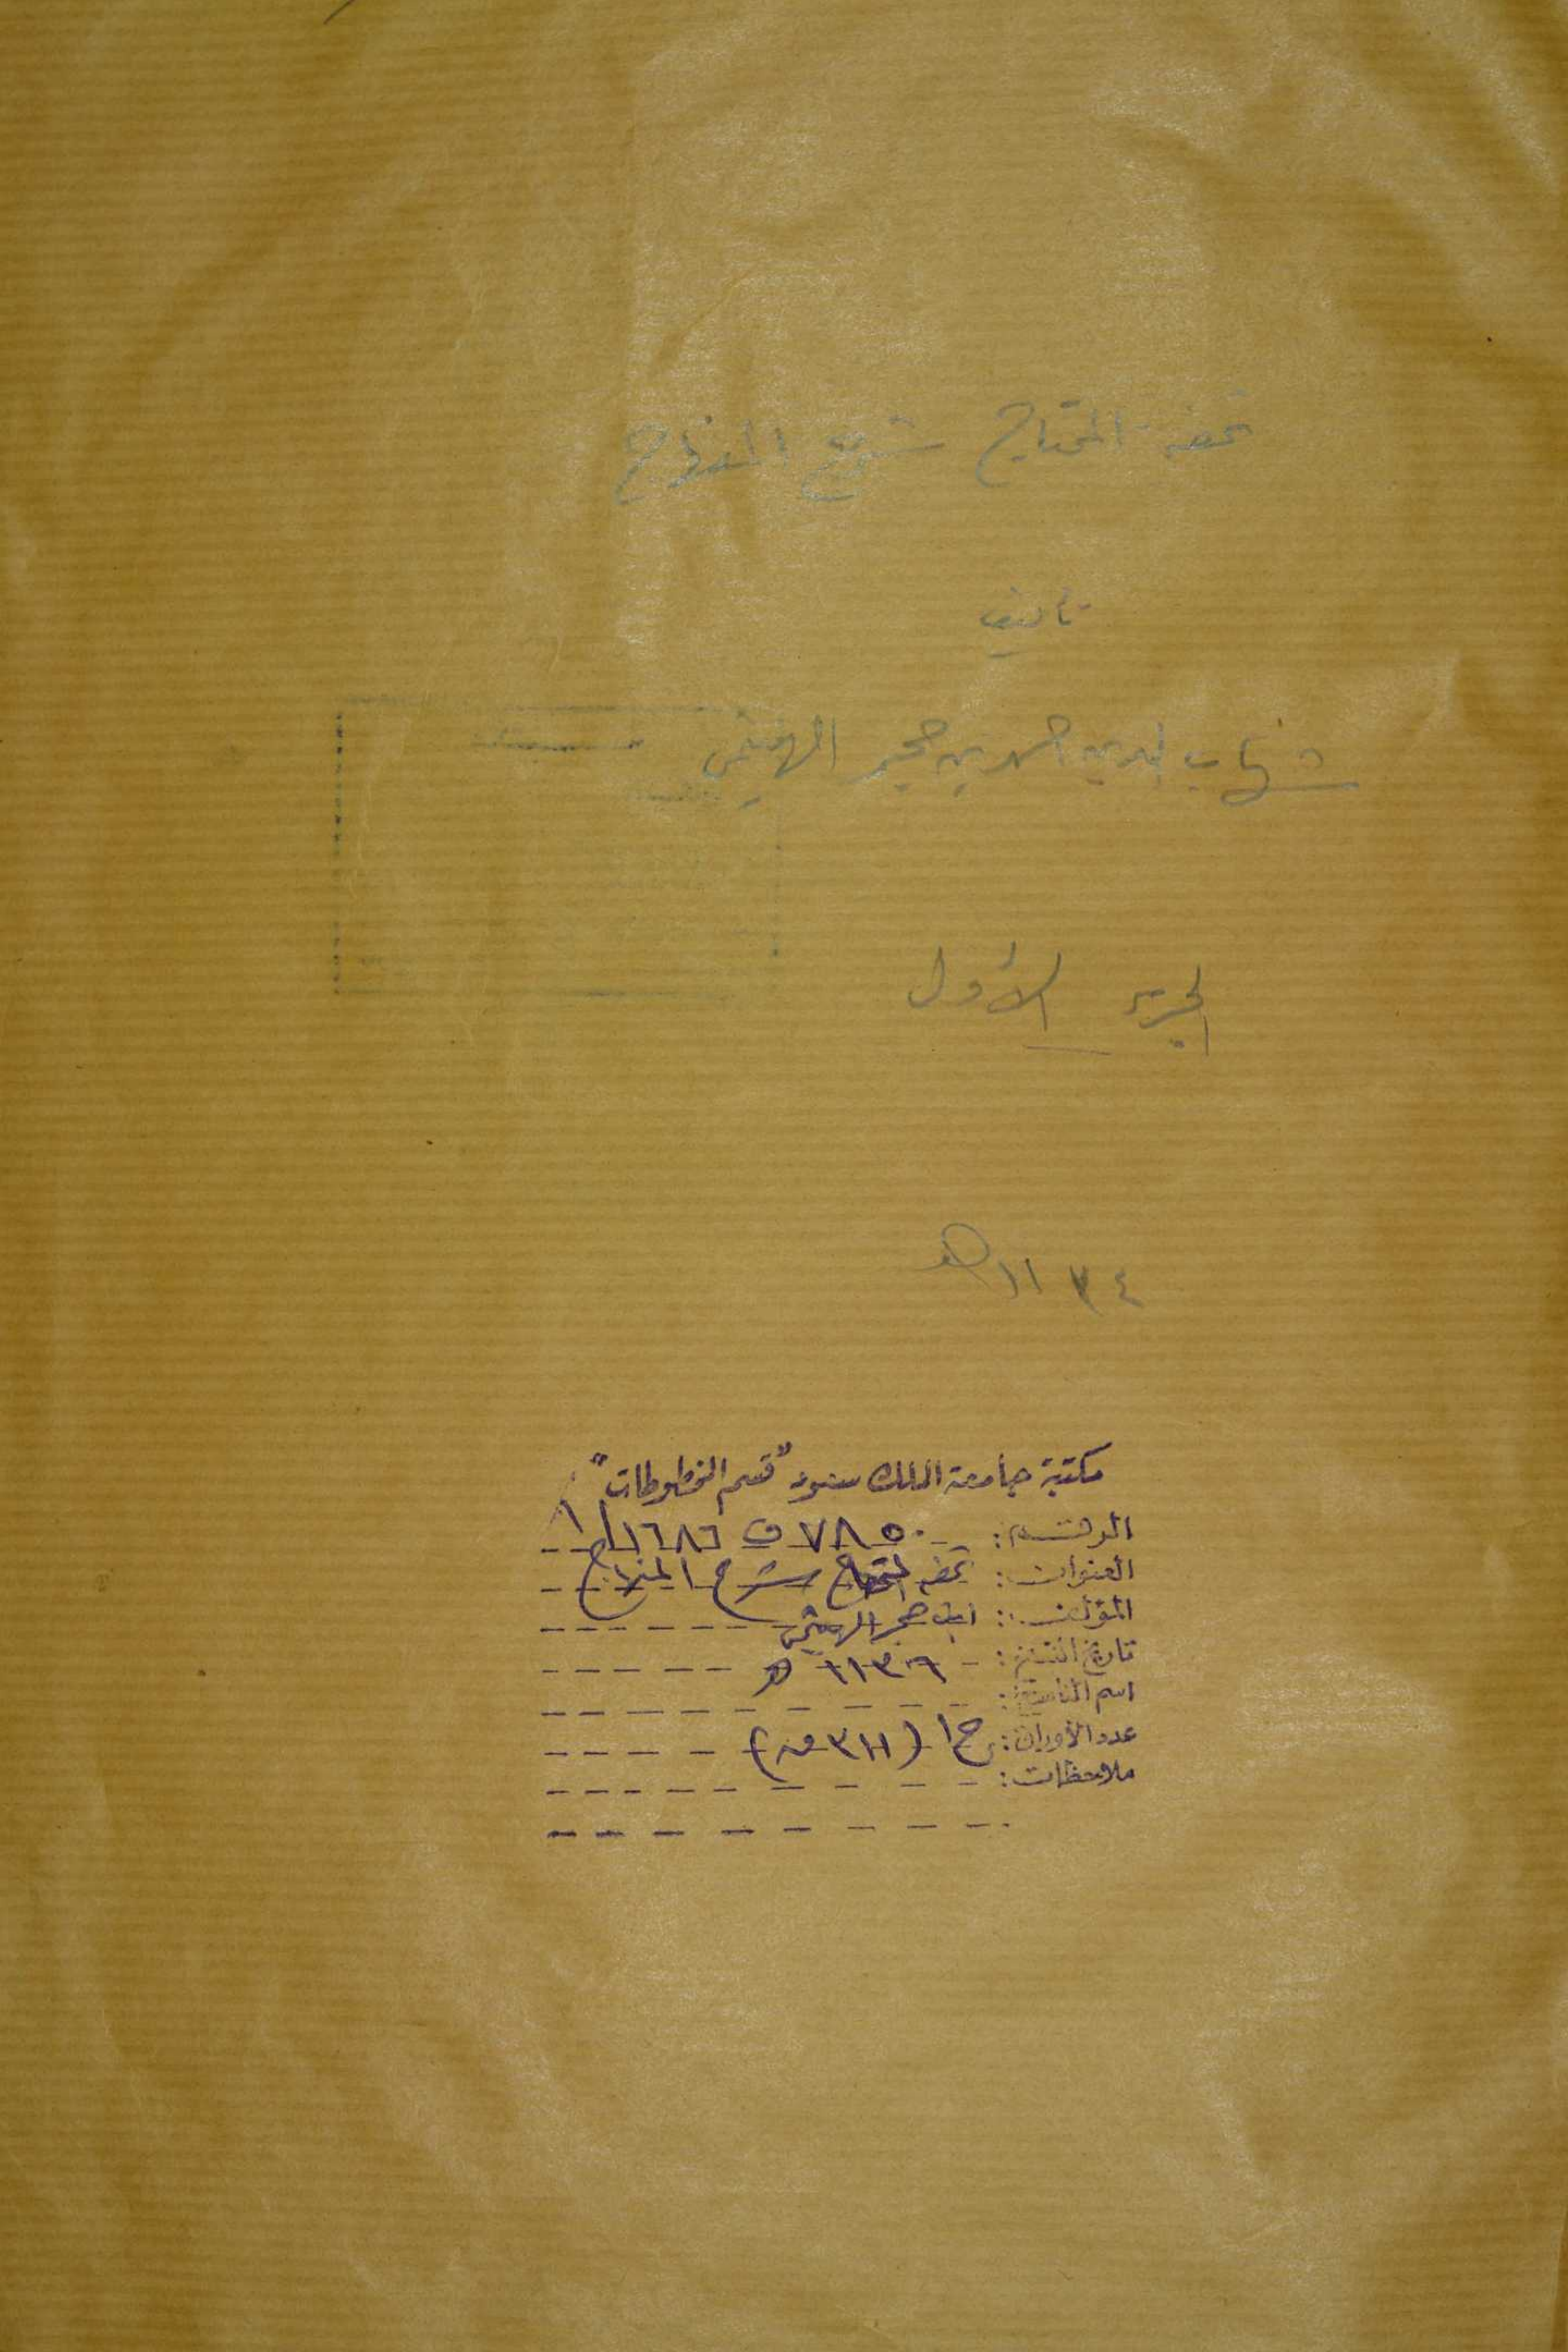 تحفة المحتاج شرح المنهاج
تأليف
شهاب الدين احمد بن حجر الهيتمي
الجزء الأول
١١٣٤ هـ
مكتبة جامعة الملك سعود "قسم المخطوطات"
الرقم: ٧٨٥٠ ف ١٦٨٦/
العنوان: تحفة المحتاج شرح المنهاج
المؤلف: ابن حجر الهيتمي
تاريخ النسخ: ١١٣٦ هـ
اسم الناسخ:
عدد الأوراق: ج١ (٣١١ ق)
ملاحظات: